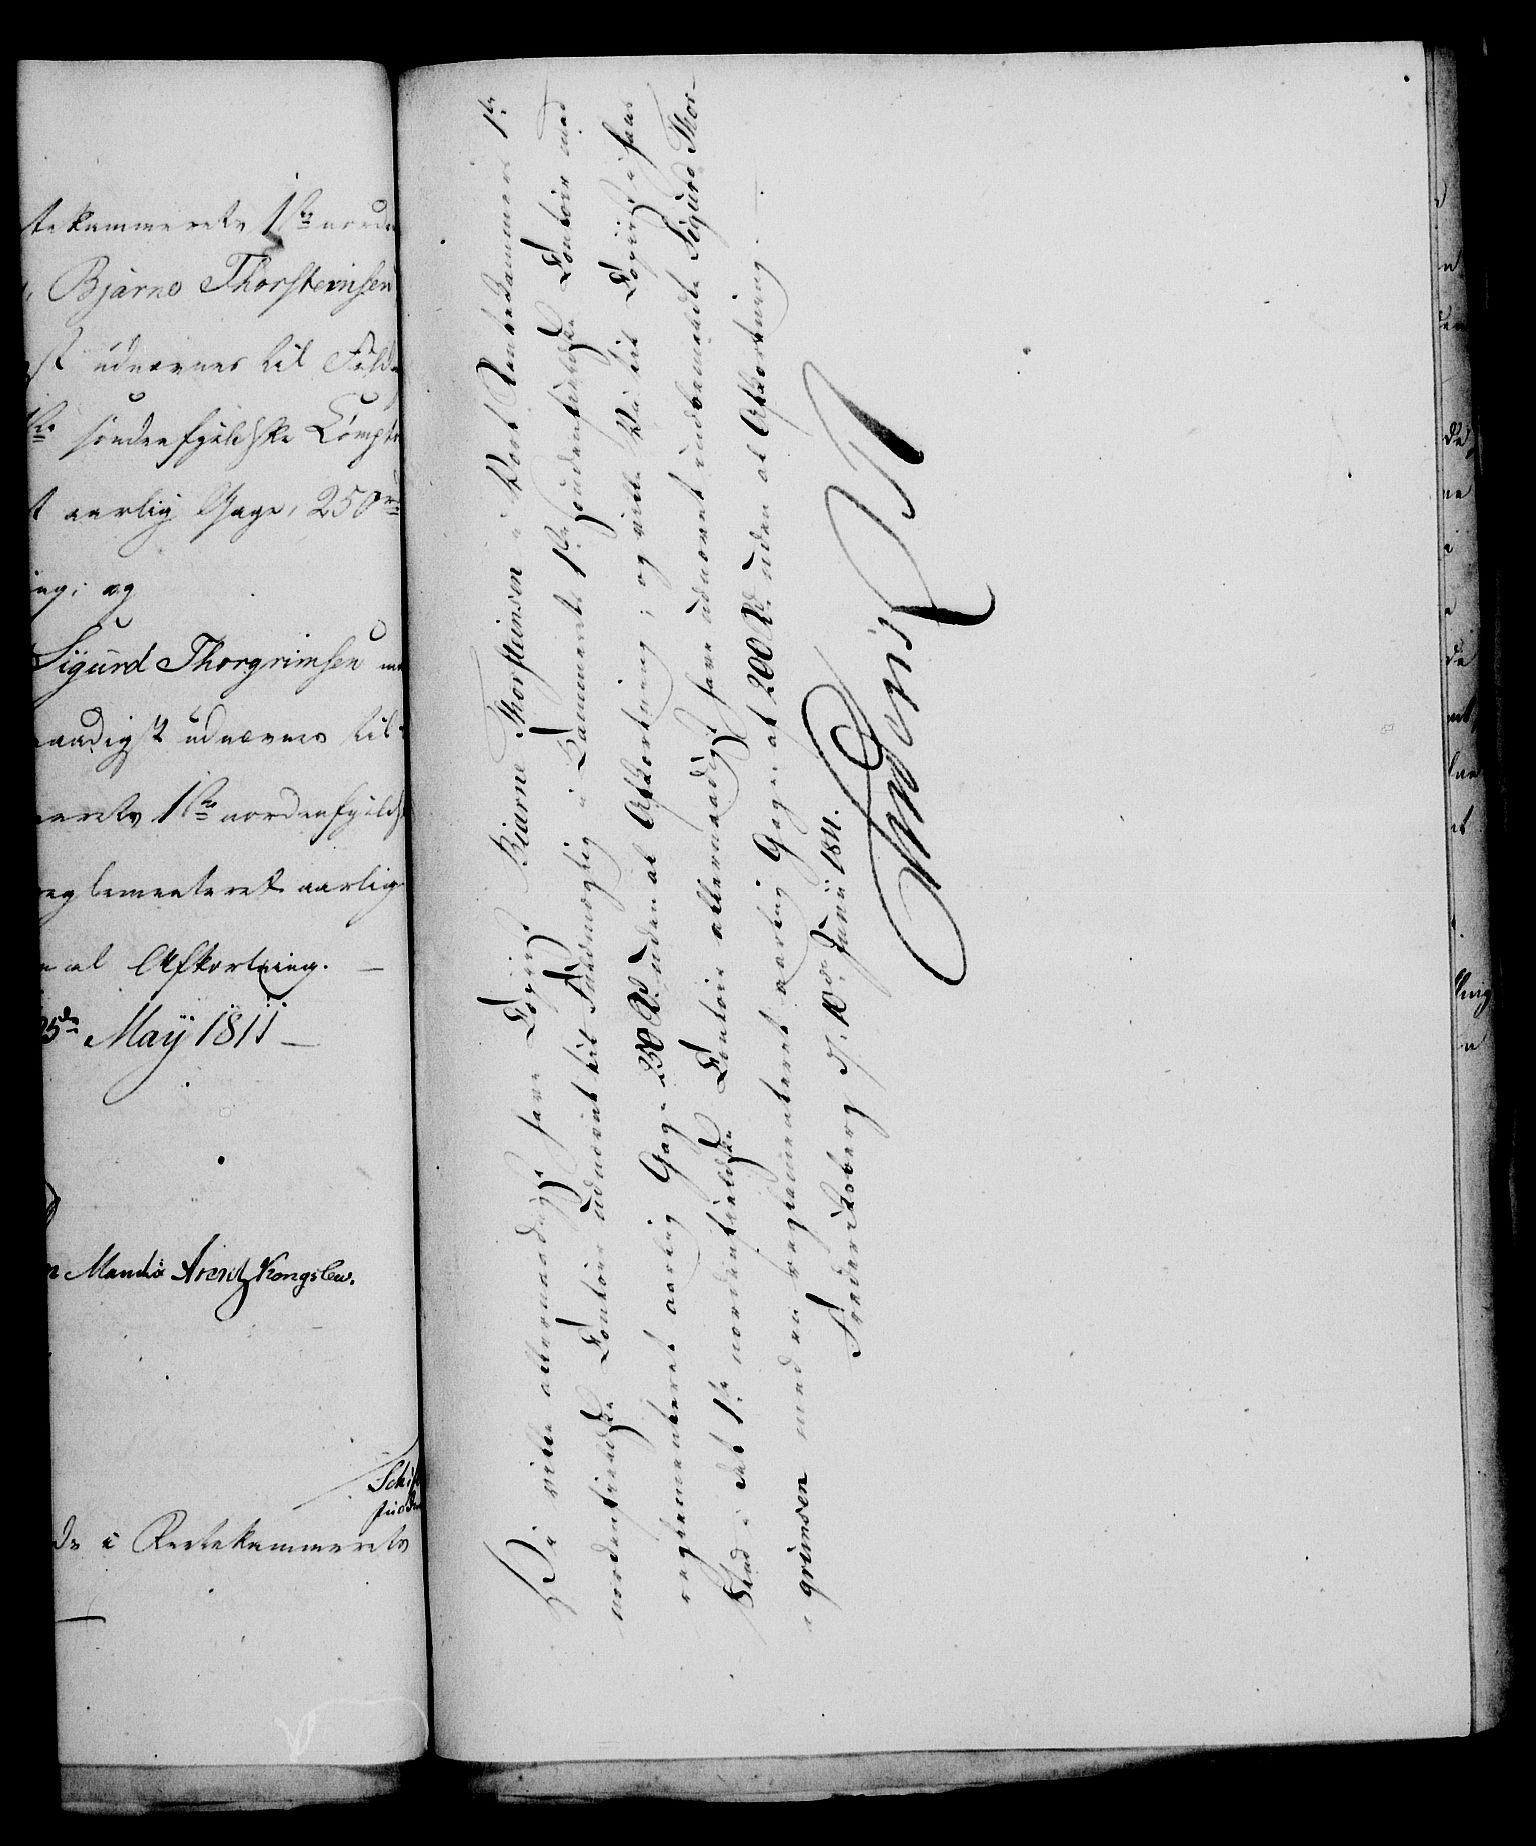 tekammerets 1ste norde
Bjarne Thorsteinsen
st udnævnes til Fuld
1ste søndenfieldske Compt
t aarlig Gage, 250 rd
ing; og
Sigurd Thorgrimsen
naadigst udnævnes til
erets 1ste nordenfields
reglementeret aarlig
n al Afkortning. —
25de May 1811 —
Mandix Arentz Kongslew.
Schi
de i Rentekammerets
Vi ville allernaadigst have Copiist Biarne Thorsteinsen i Vort Rentekammers 1ste
nordenfieldske Contoir udnævnt til Fuldmægtig i Kammerets 1ste søndenfieldske Contoir med
reglementeret aarlig Gage 250 Rd. uden al Afkortning; og ville Vi til Copiist i hans
Sted i det 1ste nordenfieldske Contoir allernaadigst have udnævnt indbemeldte Sigurd Thor-
grimsen med en reglementeret aarlig Gage af 200 Rd. uden al Afkortning.
Frederiksberg d. 10de Junii 1811.
Frederik R